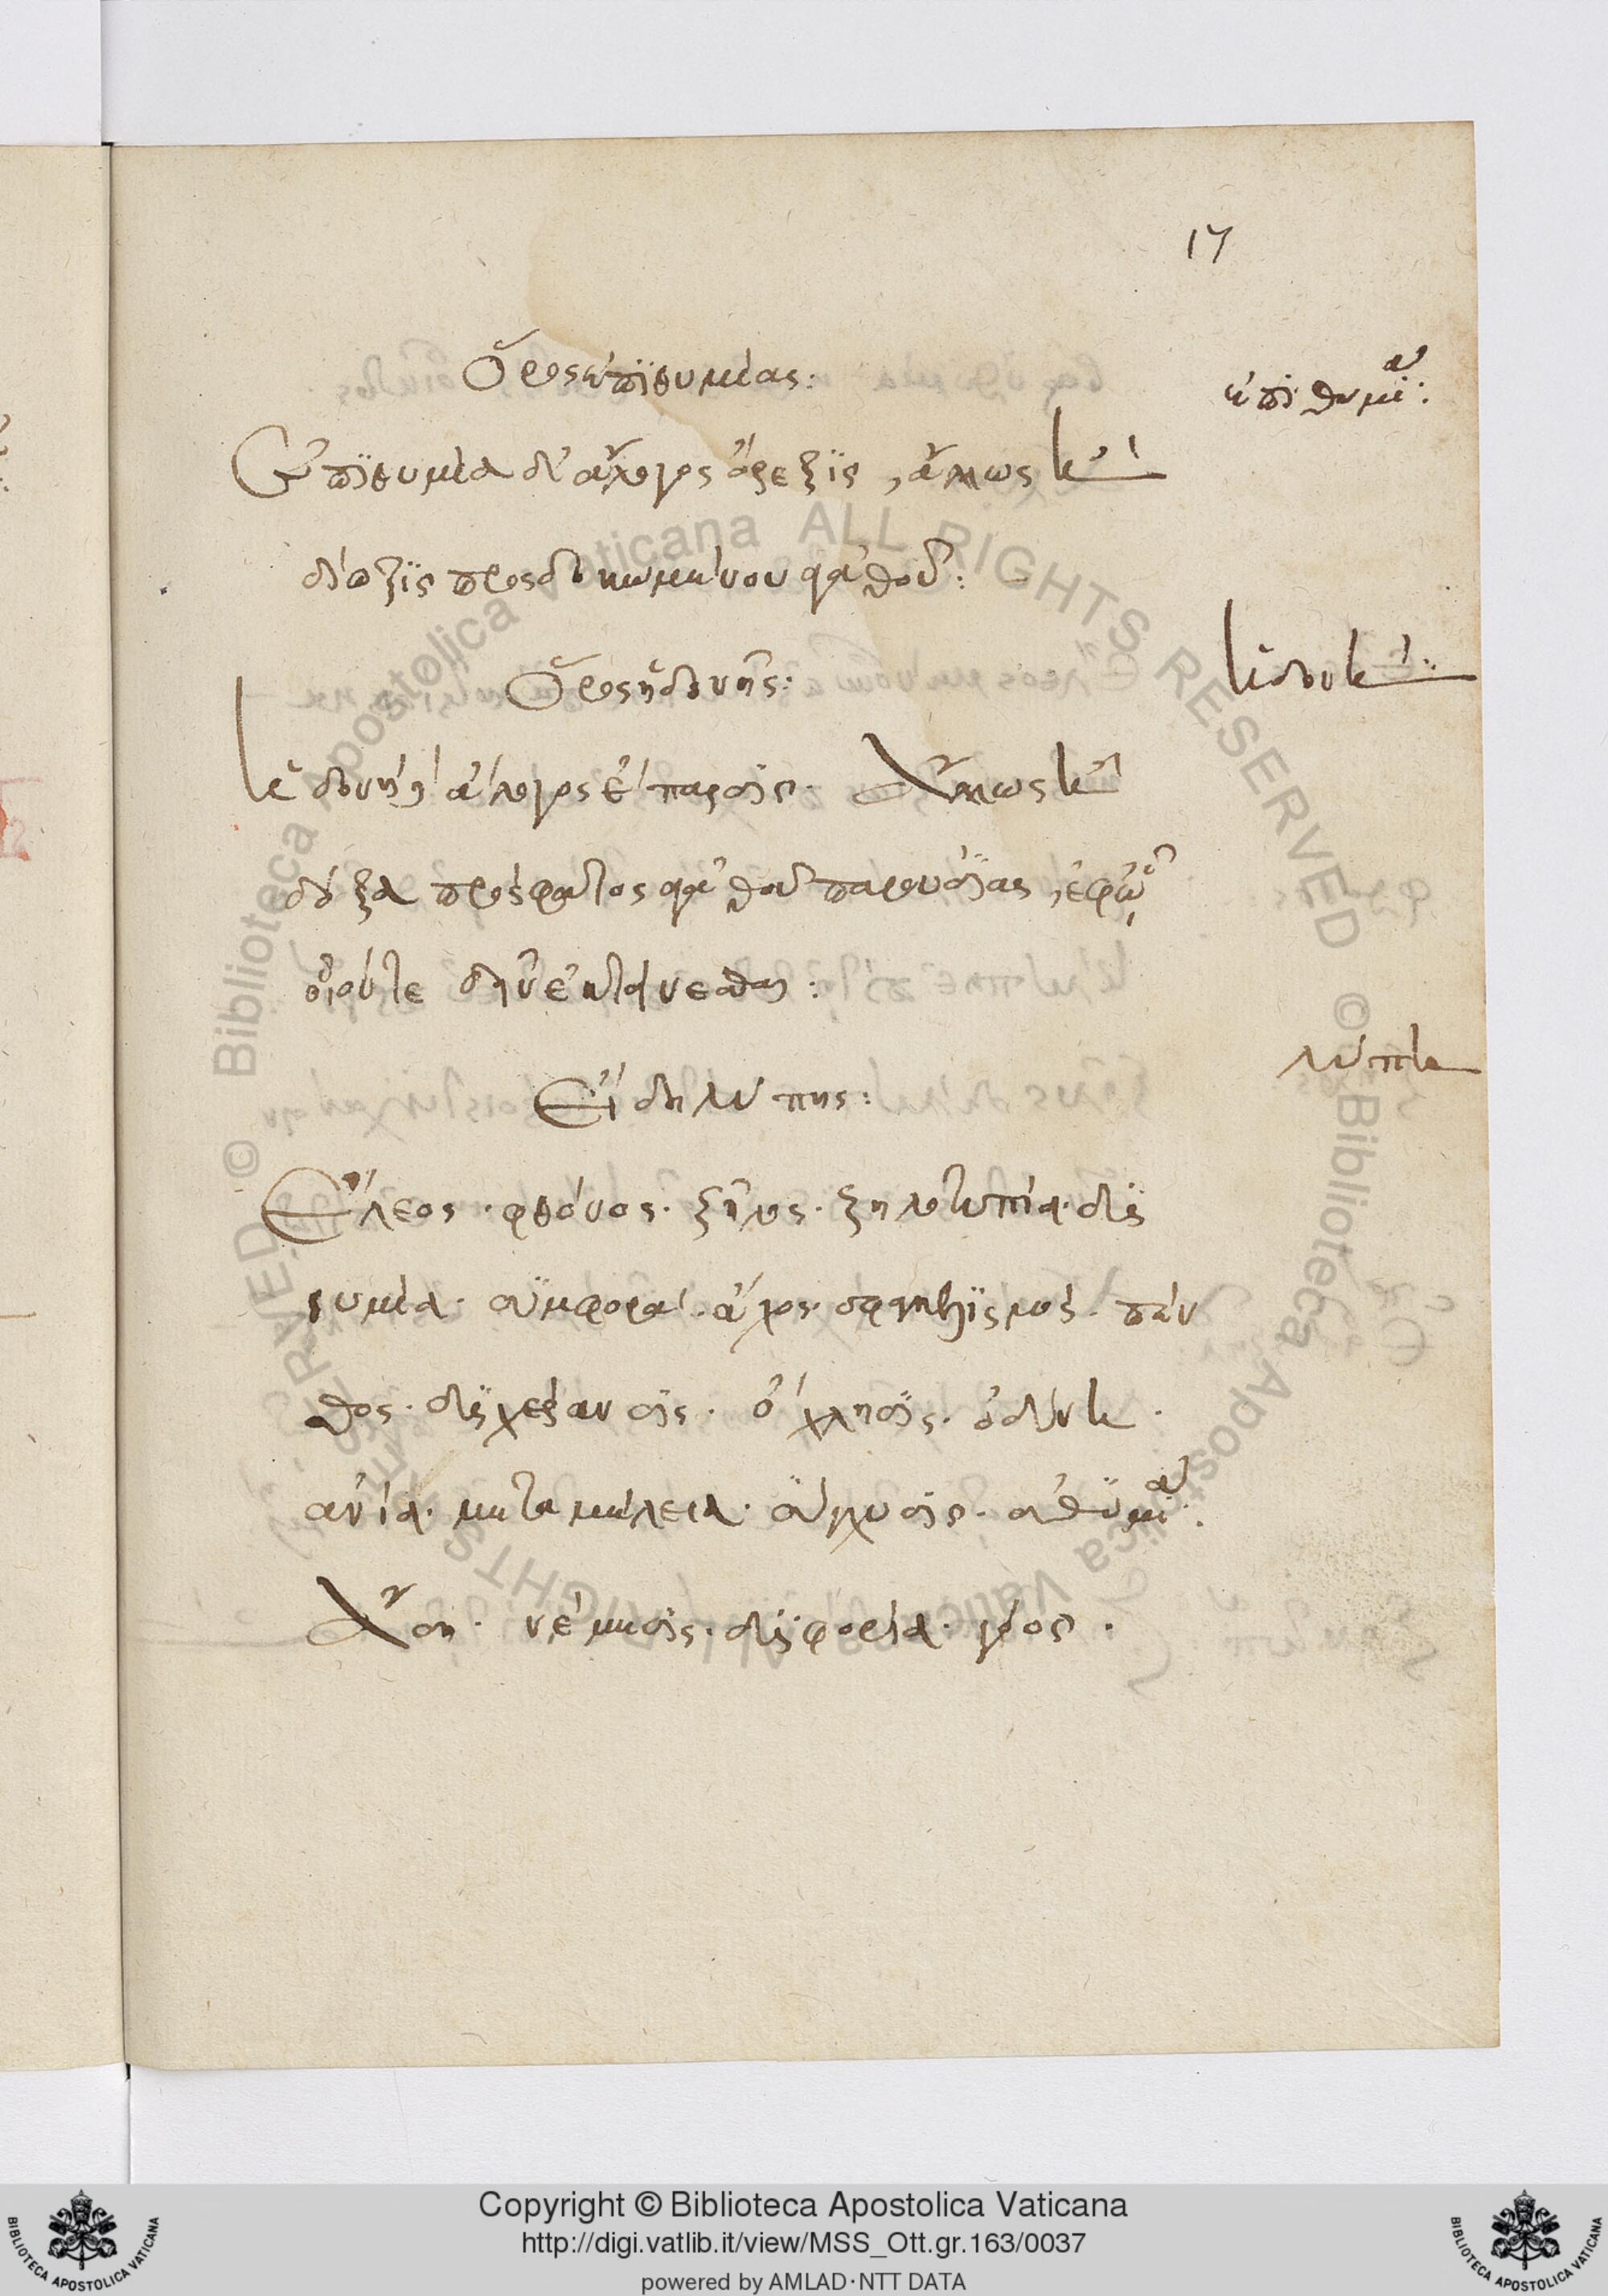 17
Ὅρος ἐπιθυμίας:
ἐπιθυμία:
Ἐπιθυμία δ' ἄλογος ὄρεξις, ἄλλως ἢ
δίωξις προσδοκωμένου ἀγαθοῦ:
Ὅρος ἡδονῆς:
ἡδονὴ:
Ἡδονὴ, ἄλογος ἔπαρσις. Ἄλλως ἢ
δόξα πρόσφατος ἀγαθοῦ παρουσίας, ἐφ' ᾧ
οἴονται δεῖν ἐπαίρεσθαι:
λύπη
Εἴδη λύπης:
Ἔλεος. φθόνος. ζῆλος. ζηλοτυπία. δυσ
θυμία. συμφορά. ἄχος. σφακελισμός. πέν
θος. δυσχέρανσις. ὄχλησις. ὀδύνη.
ἀνία. μεταμέλεια. σύγχυσις. ἀθυμία.
Ἄση. νέμεσις. δυσφορία. γόος.
Biblioteca Apostolica Vaticana ALL RIGHTS RESERVED © Biblioteca Apostolica Vaticana ALL RIGHTS RESERVED ©
Copyright © Biblioteca Apostolica Vaticana
http://digi.vatlib.it/view/MSS_Ott.gr.163/0037
powered by AMLAD·NTT DATA
BIBLIOTECA APOSTOLICA VATICANA
BIBLIOTECA APOSTOLICA VATICANA